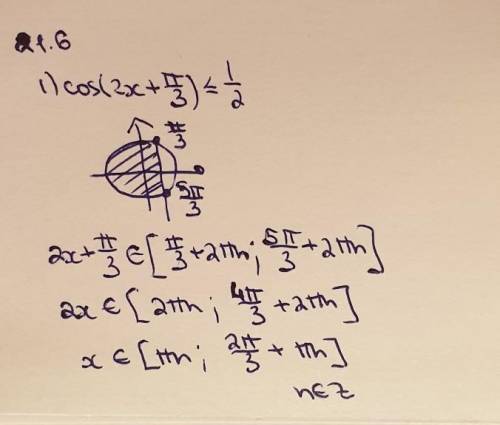 21.6
1) cos(2x+π/3) ≤ 1/2
π/3
5π/3
2x+π/3 ∈ [π/3+2πn; 5π/3+2πn]
2x ∈ [2πn; 4π/3+2πn]
x ∈ [πn; 2π/3+πn]
n∈Z